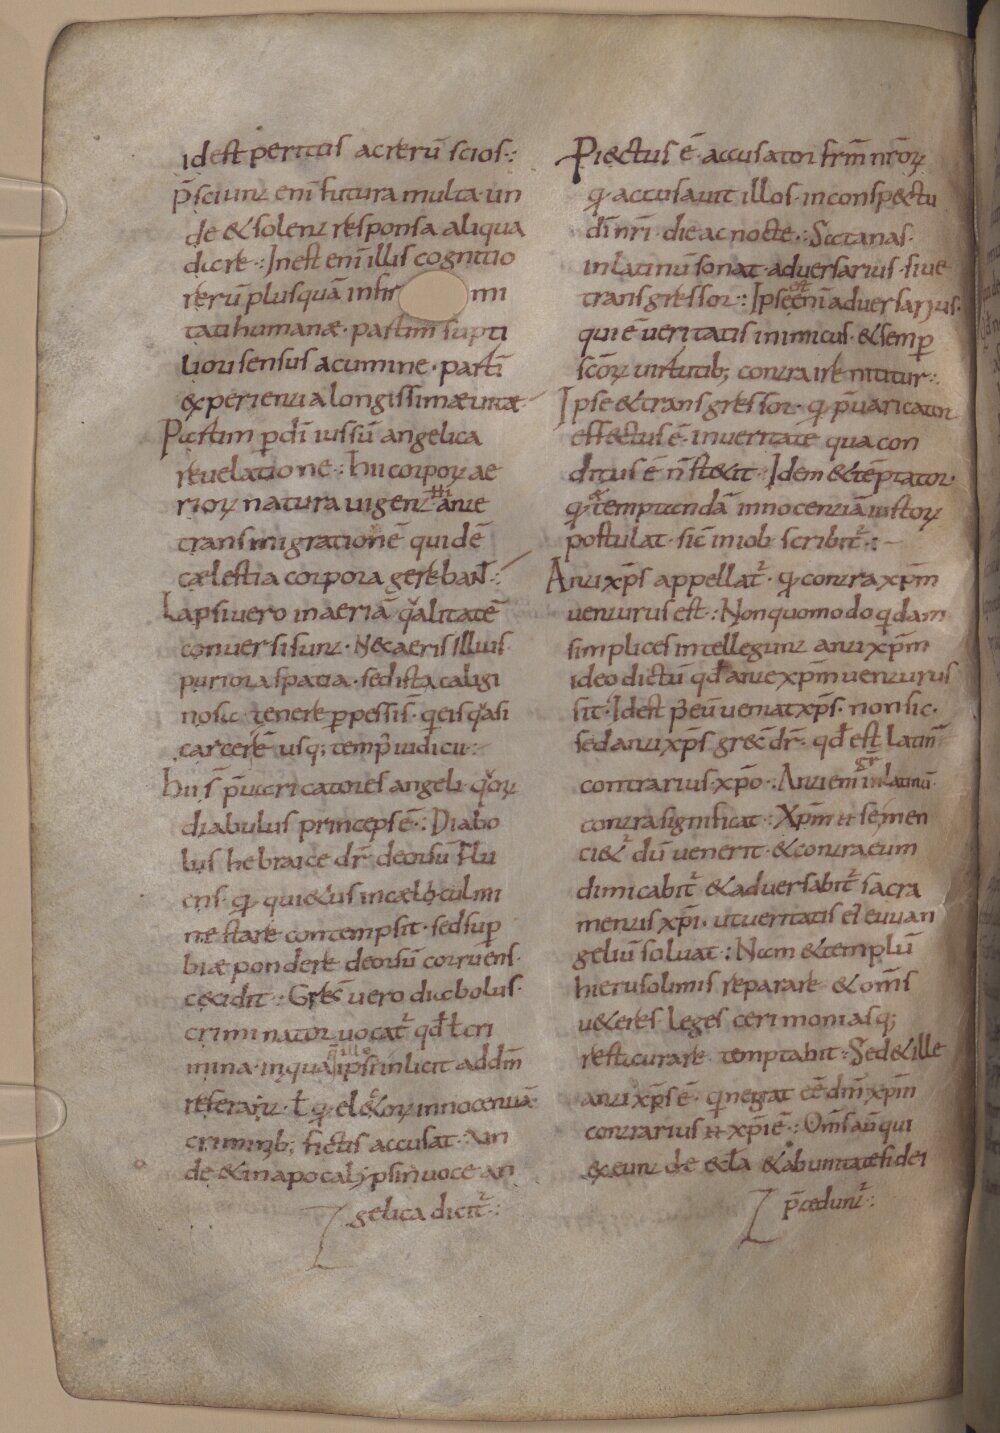 id est peritus ac rerū scios.
p̄sciunt enī futura multa· un
de & solent responsa aliqua
dicre· Inest enī illis cognitio
rerū plusquā infir mi
tati humanæ· partim supti
liori sensus acumine· partī
experientia longissimæ uitæ
Partim p dī iussū angelica
reuelatione· hii corporꝝ ae
rioꝝ natura uigent ante
transmigrationē quidē
cælestia corpora gerebant̄·
Lapsi uero in aeriā qualitatē
conuersi sunt· Nec aeris illius
puriora spatia· sed ista caligi
nosa tenere ꝑpessis̄· q̄ eis q̄asi
carcerē usq; temp̄ iudicii·
hii s̄ p̄uaricatores angeli· q̄oꝝ
diabulus princeps ē· Diabo
lus hebraice dr̄ deorsū flu
ens· qꝫ quietus in cæli culmi
ne stare contempsit· sed sup̄
biæ pondere deorsū corruens·
cecidit· Grec̄ uero diabolus·
criminator uocat᷑ qđ ł cri
mina· in qua ipse inlicit ad dm̄
q̄ ille
referat᷑· ł qꝫ electoꝝ innocentiā
criminib; fictis accusat· Un
de & in apocalypsin uoce an
gelica dicit᷑·
Piectus ē· accusator frm̄ nr̄oꝝ
qꝫ accusauit illos· in conspectu
dī nr̄i· die ac nocte· Satanas·
in latinū sonat· aduersarius· siue
transgressor· Ipse enī aduersarius·
est
qui ē ueritatis inimicus· & semꝑ
sc̄oꝝ uirtutib; contra ire nititur·
Ipse & transgressor· qꝫ p̄uaricator
effectus ē· in ueritate qua con
ditus ē n̄ stetit· Idem & tēptator
qꝫ temptandā innocentiā iustoꝝ
postulat· sic̄ in iob scribit᷑·
Anti xp̄s appellat᷑· qꝫ contra xp̄m
uenturus est· Non quomodo qdam
simplices intellegunt anti xp̄m
ideo dictū qđ ante xp̄m uenturus
sit· Id est p̄ eū ueniat xp̄s· non sic·
sed anti xp̄s grec̄ dr̄· qđ est latin̄
contrarius xp̄o· Anti eni in latinū
gr̄
contra significat· Xp̄m n̄ se men
ciet dū uenerit· & contra eum
dimicabit᷑ & aduersabit᷑ sacra
mentis xp̄i· ut ueritatis ei euuan
geliū soluat· Nam & templū
hierusolimis reparare & om̄s
ueteres leges cerimoniasq;
restaurare temptabit· Sed & ille
anti xp̄s ē· q̄ negat eē dm̄ xp̄m
contrarius n̄ xp̄i ē· Om̄s añ qui
exeunt de eccł̄a & ab unitate fidei
p̄ceduntur᷑·